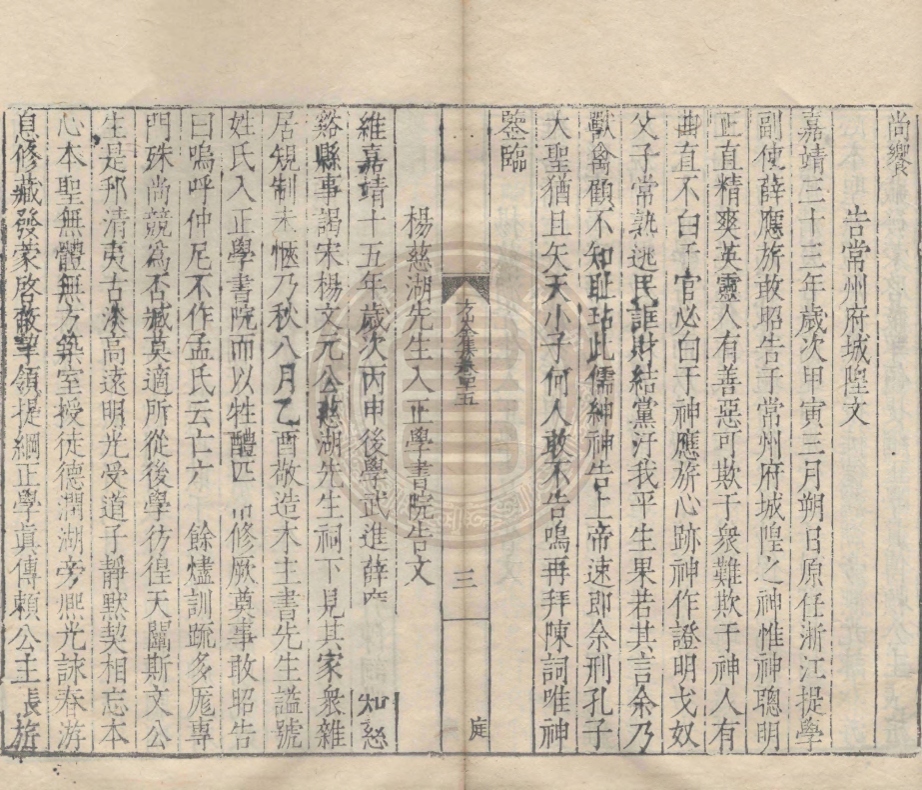 尚饗
告常州府城隍文
嘉靖三十三年歲次甲寅三月朔日原任浙江提學
副使薛應旂敢昭告于常州府城隍之神惟神聰明
正直精爽英靈人有善惡可欺于衆難欺于神人有
曲直不白于官必白于神應旂心跡神作證明戈奴
父子常熟逃民誆財結黨汙我平生果若其言余乃
獸禽顧不知耻玷此儒紳神告上帝速即余刑孔子
大聖猶且矢天小子何人敢不告鳴再拜陳詞唯神
鑒臨
方山全集卷四十五
三
庭
楊慈湖先生入正學書院告文
維嘉靖十五年歲次丙申後學武進薛應 知慈
谿縣事謁宋楊文元公慈湖先生祠下見其家衆雜
居規制未愜乃秋八月乙酉敬造木主書先生謚號
姓氏入正學書院而以牲醴匹 修厥奠事敢昭告
曰嗚呼仲尼不作孟氏云亡六 餘燼訓䟽多厖專
門殊尚競為否臧莫適所從後學彷徨天闢斯文公
生是邦清夷古淡高遠明光受道子靜默契相忘本
心本聖無體無方築室授徒德潤湖旁熈光詠春游
息修藏發蒙啓蔽挈領提綱正學眞傳賴公主張旂